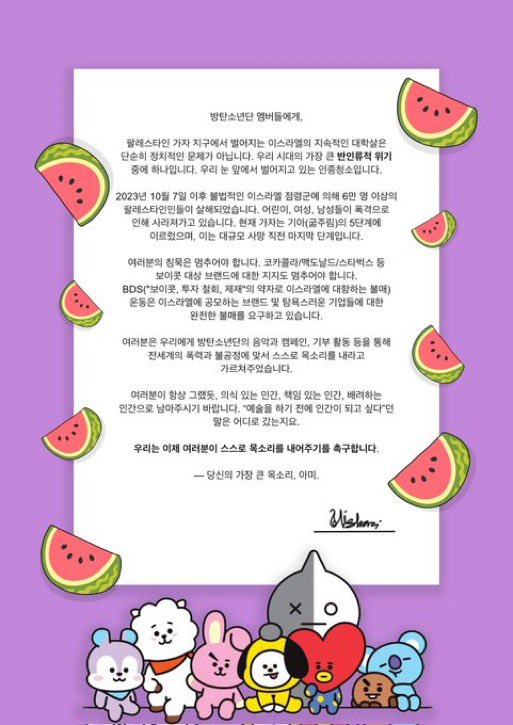 방탄소년단 멤버들에게,
팔레스타인 가자 지구에서 벌어지는 이스라엘의 지속적인 대학살은
단순히 정치적인 문제가 아닙니다. 우리 시대의 가장 큰 반인류적 위기
중에 하나입니다. 우리 눈 앞에서 벌어지고 있는 인종청소입니다.
2023년 10월 7일 이후 불법적인 이스라엘 점령군에 의해 6만 명 이상의
팔레스타인인들이 살해되었습니다. 어린이, 여성, 남성들이 폭격으로
인해 사라져가고 있습니다. 현재 가자는 기아(굶주림)의 5단계에
이르렀으며, 이는 대규모 사망 직전 마지막 단계입니다.
여러분의 침묵은 멈추어야 합니다. 코카콜라/맥도날드/스타벅스 등
보이콧 대상 브랜드에 대한 지지도 멈추어야 합니다.
BDS("보이콧, 투자 철회, 제재"의 약자로 이스라엘에 대항하는 불매)
운동은 이스라엘에 공모하는 브랜드 및 탐욕스러운 기업들에 대한
완전한 불매를 요구하고 있습니다.
여러분은 우리에게 방탄소년단의 음악과 캠페인, 기부 활동 등을 통해
전세계의 폭력과 불공정에 맞서 스스로 목소리를 내라고
가르쳐주었습니다.
여러분이 항상 그랬듯, 의식 있는 인간, 책임 있는 인간, 배려하는
인간으로 남아주시기 바랍니다. "예술을 하기 전에 인간이 되고 싶다"던
말은 어디로 갔는지요.
우리는 이제 여러분이 스스로 목소리를 내어주기를 촉구합니다.
— 당신의 가장 큰 목소리, 아미.